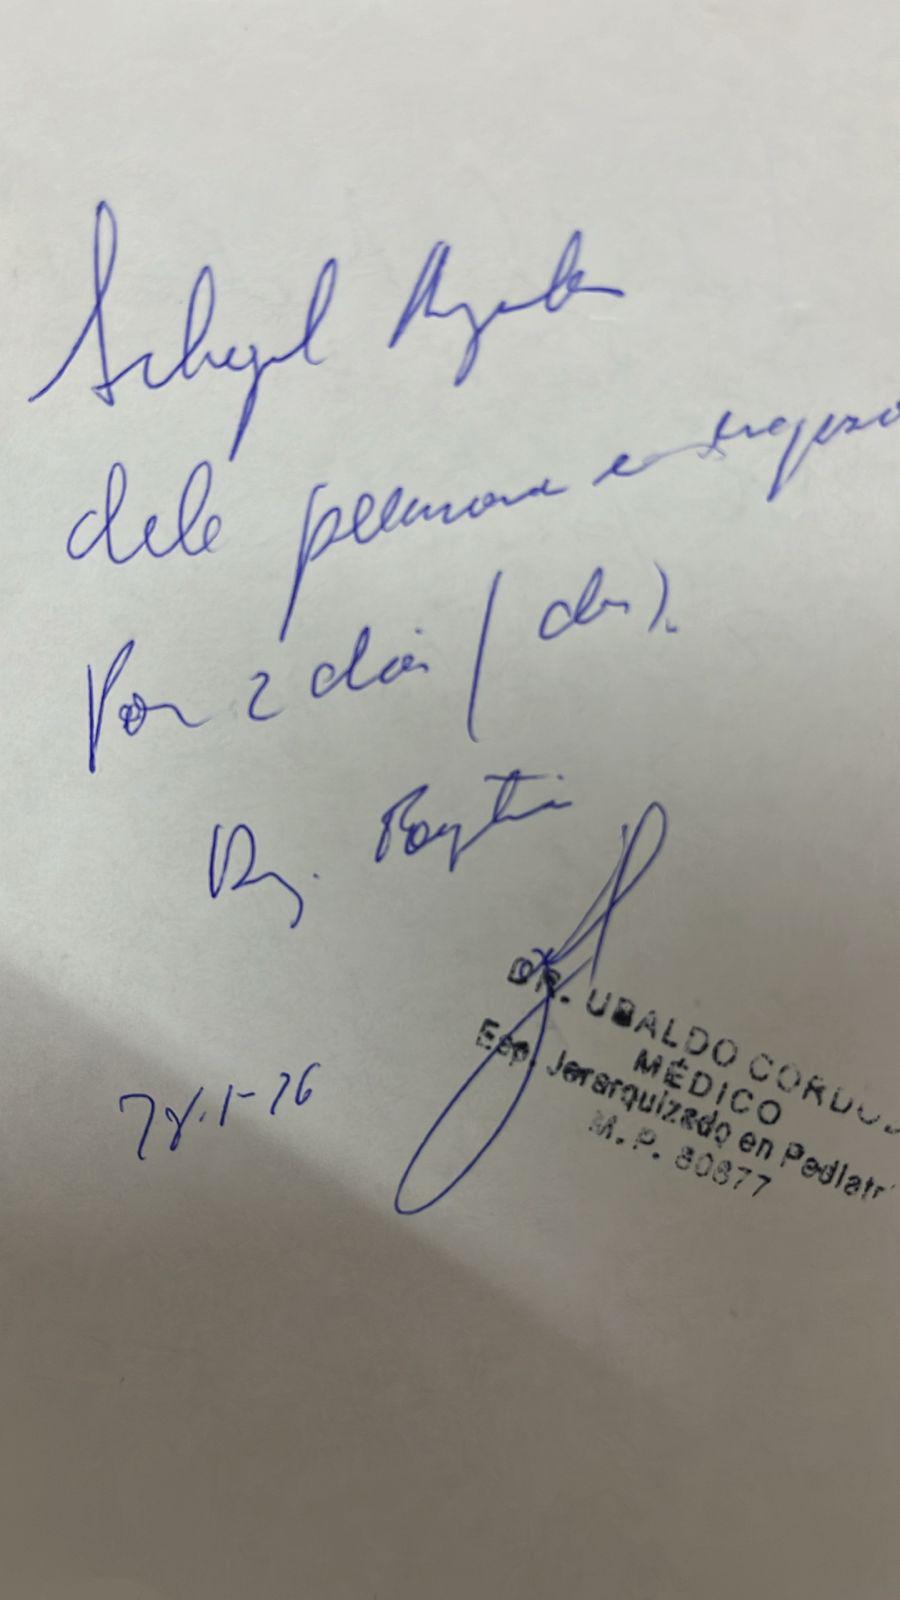 debe permanecer en reposo
Por 2 días (dos).
Dg.
28-1-26
DR. UBALDO CORDO
MÉDICO
Esp. Jerarquizado en Pediatr
M.P. 80877